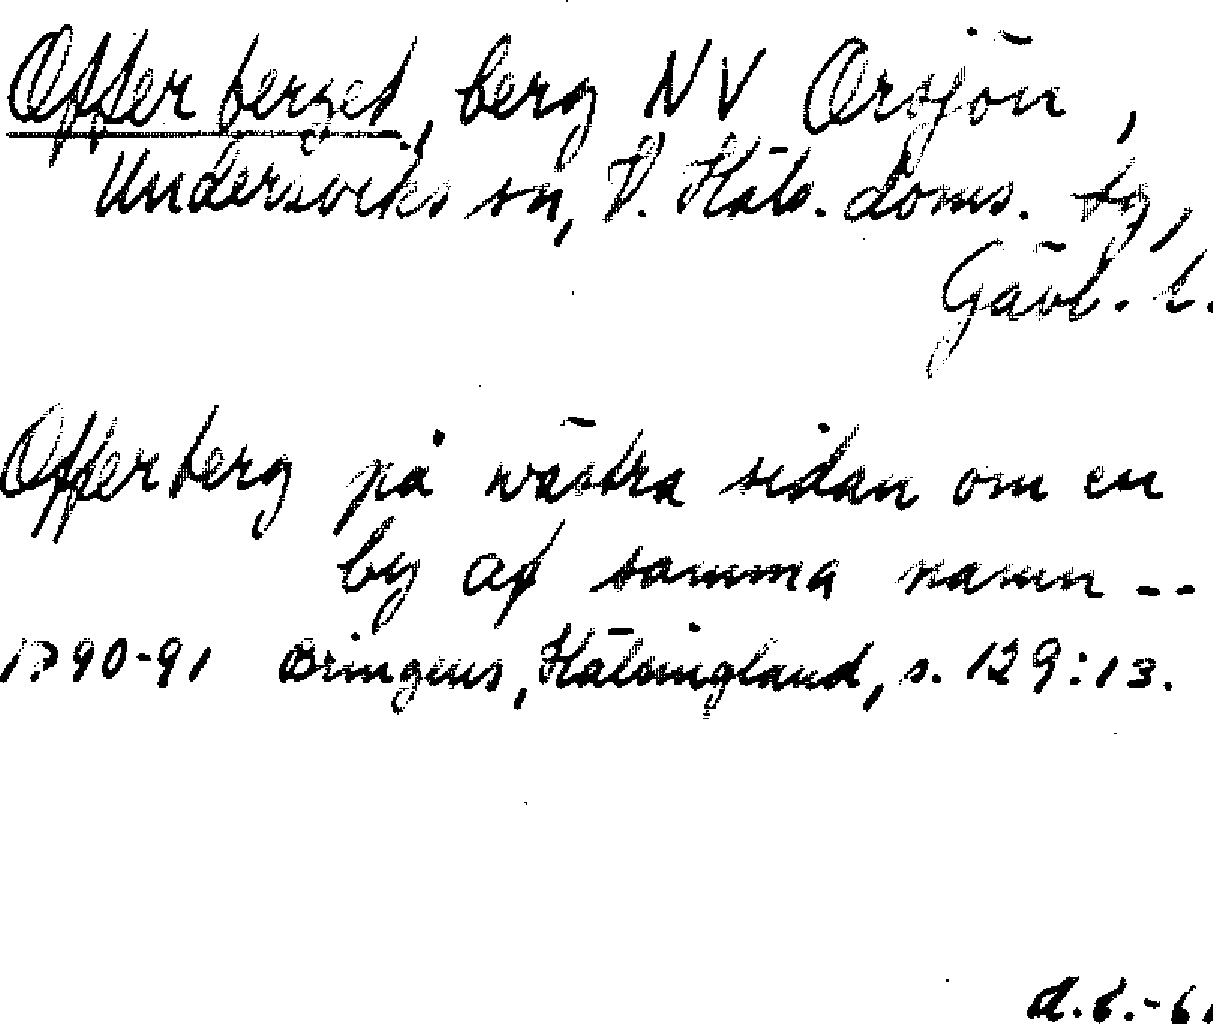 Offerberget, berg NV Orsjön,
Undersviks sn, V. Häls. doms. tg,
Gävl. l.
Offerberg på wästra sidan om en
by af samma namn --
1790-91 Bringéus, Hälsingland, s. 129:13.